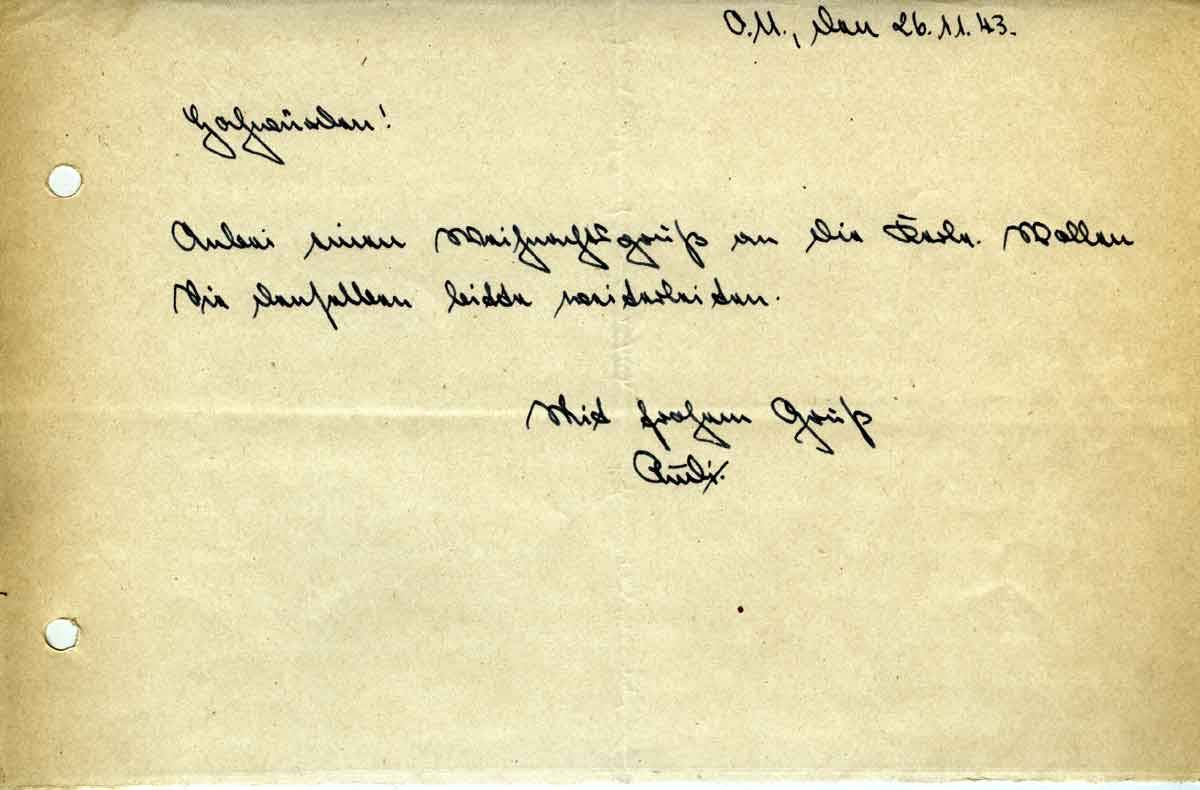 O.U., den 26.11.43.
Hochwürden!
Anbei einen Weihnachtsgruß an die Kerle. Wollen
Sie denselben bitte weiterleiten.
Mit frohem Gruß